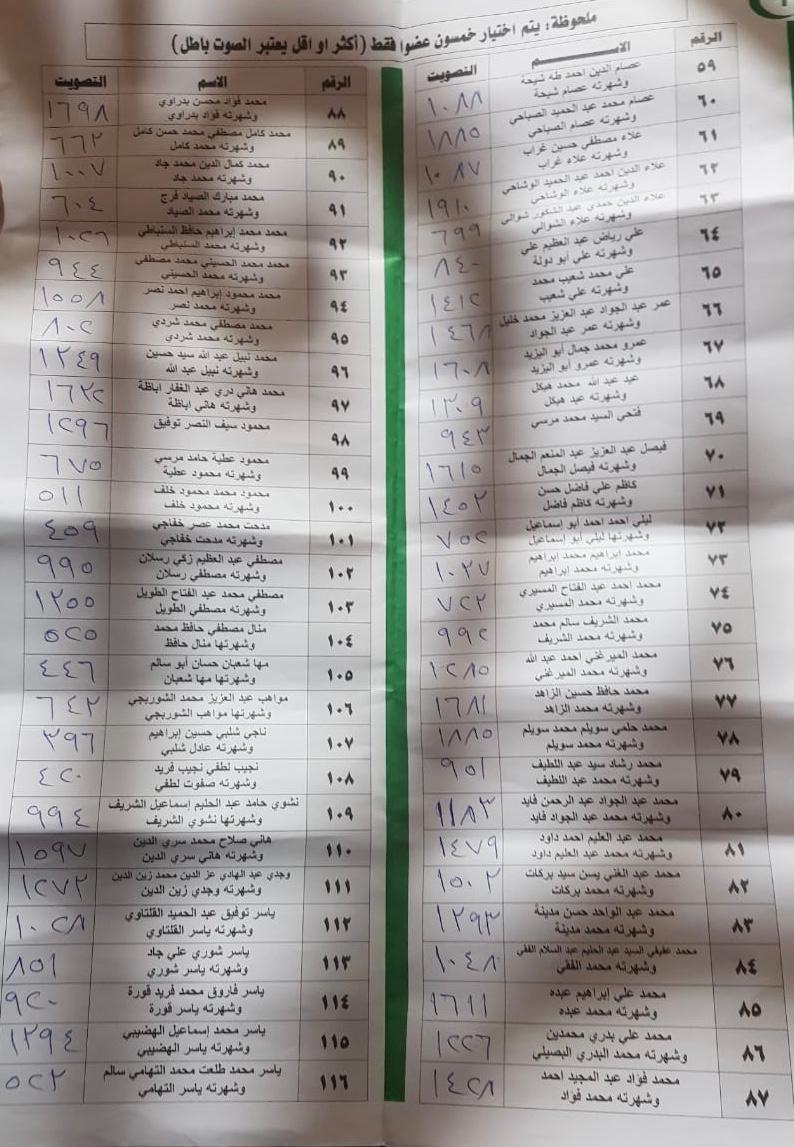 ملحوظة: يتم اختيار خمسون عضوا فقط (أكثر او اقل يعتبر الصوت باطل)
الرقم الاســـــم التصويت
٥٩ عصام الدين احمد طه شيحة
وشهرته عصام شيحة ١٠٨٨
٦٠ عصام محمد عبد الحميد الصباحي
وشهرته عصام الصباحي ١٨٨٥
٦١ علاء مصطفي حسين غراب
وشهرته علاء غراب ١٠٨٧
٦٢ علاء الدين احمد عبد الحميد الوشاحي
وشهرته علاء الوشاحي ١٩١٠
٦٣ علاء الدين حمدي عبد الشكور شوالي
وشهرته علاء الشوالي ٧٩٩
٦٤ علي رياض عبد العظيم علي
وشهرته علي أبو دولة ٨٤٠
٦٥ علي محمد شعيب محمد
وشهرته علي شعيب ١٤١٢
٦٦ عمر عبد الجواد عبد العزيز محمد خليل
وشهرته عمر عبد الجواد ١٤٦٨
٦٧ عمرو محمد جمال أبو اليزيد
وشهرته عمرو أبو اليزيد ١٦٠٨
٦٨ عيد عبد الله محمد هيكل
وشهرته عيد هيكل ١٣٠٩
٦٩ فتحي السيد محمد مرسي ٩٤٣
٧٠ فيصل عبد العزيز عبد المنعم الجمال
وشهرته فيصل الجمال ١٦١٥
٧١ كاظم علي فاضل حسن
وشهرته كاظم فاضل ١٤٥٣
٧٢ ليلي احمد احمد أبو إسماعيل
وشهرتها ليلي أبو إسماعيل ٧٥٢
٧٣ محمد إبراهيم محمد إبراهيم
وشهرته محمد إبراهيم ١٠٢٧
٧٤ محمد احمد عبد الفتاح المسيري
وشهرته محمد المسيري ٧٢٣
٧٥ محمد الشريف سالم محمد
وشهرته محمد الشريف ٩٩٢
٧٦ محمد الميرغني احمد عبد الله
وشهرته محمد الميرغني ١٢٨٥
٧٧ محمد حافظ حسين الزاهد
وشهرته محمد الزاهد ١٦٨١
٧٨ محمد حلمي سويلم محمد سويلم
وشهرته محمد سويلم ١٨٨٥
٧٩ محمد رشاد سيد عبد اللطيف
وشهرته محمد عبد اللطيف ٩٥١
٨٠ محمد عبد الجواد عبد الرحمن فايد
وشهرته محمد عبد الجواد فايد ١١٨٣
٨١ محمد عبد العليم احمد داود
وشهرته محمد عبد العليم داود ١٤٧٩
٨٢ محمد عبد الغني يسن سيد بركات
وشهرته محمد بركات ١٥٠٣
٨٣ محمد عبد الواحد حسن مدينة
وشهرته محمد مدينة ١٢٩٣
٨٤ محمد عفيفي السيد عبد الحليم عبد السلام الفقي
وشهرته محمد الفقي ١٠٤٨
٨٥ محمد علي إبراهيم عبده
وشهرته محمد عبده ١٦١١
٨٦ محمد علي بدري محمدين
وشهرته محمد البدري البصيلي ١٢٢٦
٨٧ محمد فؤاد عبد المجيد احمد
وشهرته محمد فؤاد ١٤٢٨
الرقم الاسم التصويت
٨٨ محمد فؤاد محسن بدراوي
وشهرته فؤاد بدراوي ١٦٩٨
٨٩ محمد كامل مصطفي محمد حسن كامل
وشهرته محمد كامل ٦٦٢
٩٠ محمد كمال الدين محمد جاد
وشهرته محمد جاد ١٠٠٧
٩١ محمد مبارك الصياد فرج
وشهرته محمد الصياد ٦٠٤
٩٢ محمد محمد إبراهيم حافظ السنباطي
وشهرته محمد السنباطي ١٠٢٦
٩٣ محمد محمد الحسيني محمد مصطفي
وشهرته محمد الحسيني ٩٤٤
٩٤ محمد محمود إبراهيم احمد نصر
وشهرته محمد نصر ١٥٥٨
٩٥ محمد مصطفي محمد شردي
وشهرته محمد شردي ٨٠٢
٩٦ محمد نبيل عبد الله سيد حسين
وشهرته نبيل عبد الله ١٣٤٩
٩٧ محمد هاني دري عبد الغفار اباظة
وشهرته هاني اباظة ١٦٣٢
٩٨ محمود سيف النصر توفيق ١٢٩٦
٩٩ محمود عطية حامد مرسي
وشهرته محمود عطية ٦٧٥
١٠٠ محمود محمد محمود خلف
وشهرته محمود خلف ٥١١
١٠١ مدحت محمد عصر خفاجي
وشهرته مدحت خفاجي ٤٥٩
١٠٢ مصطفي عبد العظيم زكي رسلان
وشهرته مصطفي رسلان ٩٩٥
١٠٣ مصطفي محمد عبد الفتاح الطويل
وشهرته مصطفي الطويل ١٢٥٥
١٠٤ منال مصطفي حافظ محمد
وشهرتها منال حافظ ٥٢٥
١٠٥ مها شعبان حسان أبو سالم
وشهرتها مها شعبان ٤٤٦
١٠٦ مواهب عبد العزيز محمد الشوربجي
وشهرتها مواهب الشوربجي ٦٤٣
١٠٧ ناجي شلبي حسين إبراهيم
وشهرته عادل شلبي ٣٩٦
١٠٨ نجيب لطفي نجيب فريد
وشهرته صفوت لطفي ٤٢٠
١٠٩ نشوي حامد عبد الحليم إسماعيل الشريف
وشهرتها نشوي الشريف ٩٩٤
١١٠ هاني صلاح محمد سري الدين
وشهرته هاني سري الدين ١٥٩٧
١١١ وجدي عبد الهادي عز الدين محمد زين الدين
وشهرته وجدي زين الدين ١٢٧٢
١١٢ ياسر توفيق عبد الحميد القلتاوي
وشهرته ياسر القلتاوي ١٠٢٨
١١٣ ياسر شوري علي جاد
وشهرته ياسر شوري ٨٥١
١١٤ ياسر فاروق محمد فريد قورة
وشهرته ياسر قورة ٩٢٠
١١٥ ياسر محمد إسماعيل الهضيبي
وشهرته ياسر الهضيبي ١٢٩٤
١١٦ ياسر محمد طلعت محمد التهامي سالم
وشهرته ياسر التهامي ٥٢٣